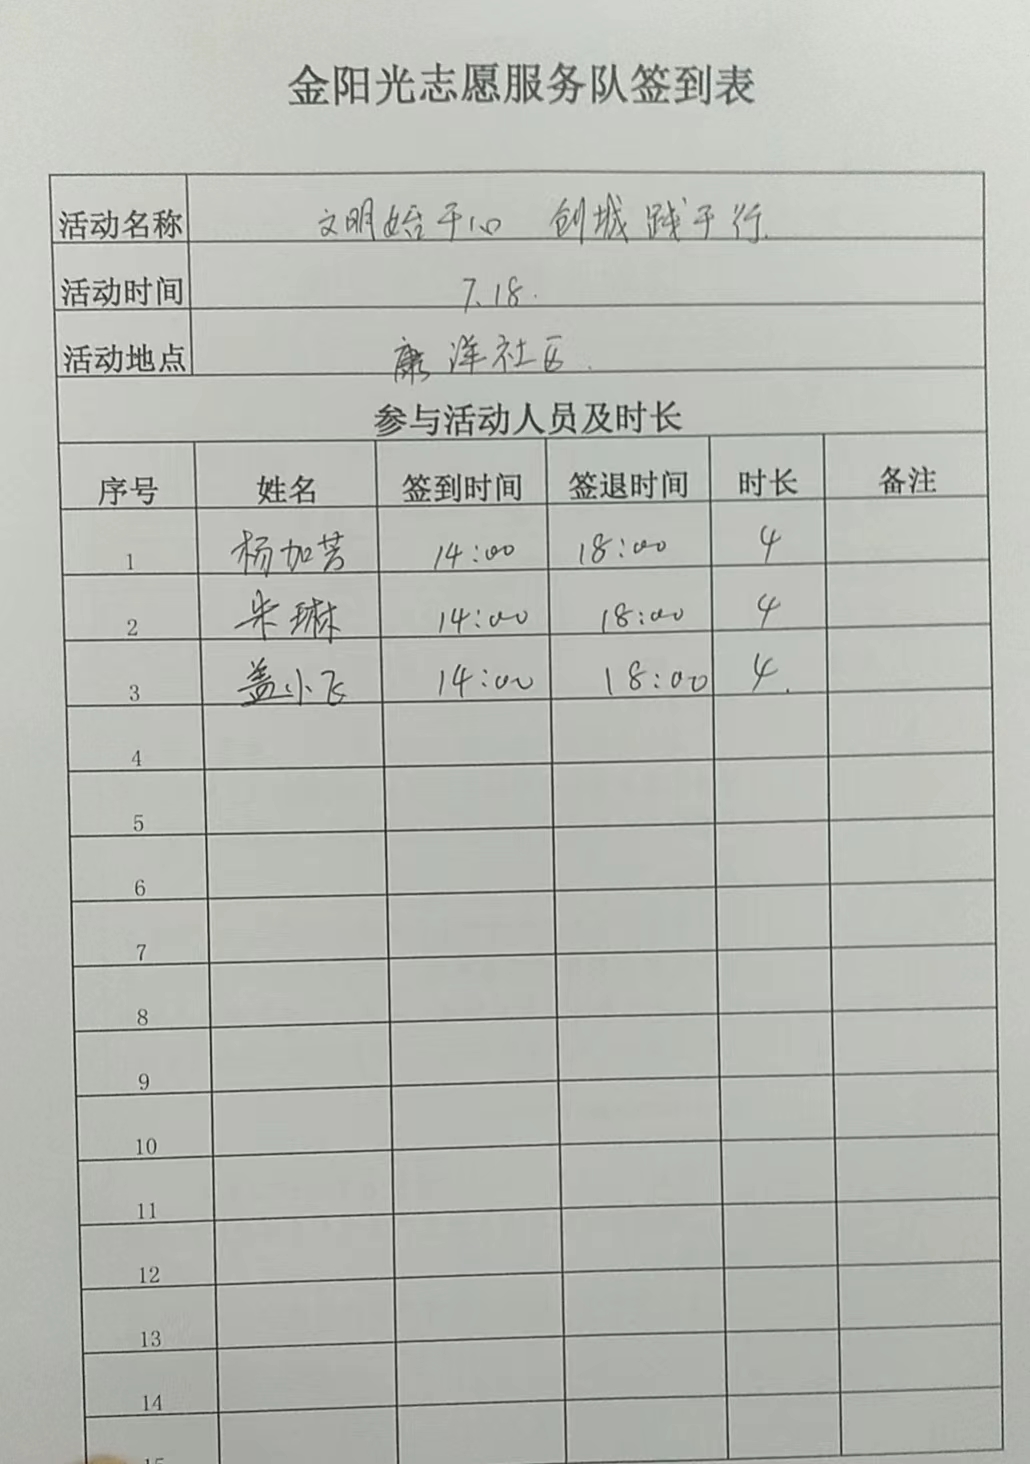 金阳光志愿服务队签到表
活动名称 文明始于心 创城践于行
活动时间 7.18.
活动地点 康洋社区.
参与活动人员及时长
序号 姓名 签到时间 签退时间 时长 备注
1 杨加芳 14:00 18:00 4
2 朱琳 14:00 18:00 4
3 盖小飞 14:00 18:00 4.
4
5
6
7
8
9
10
11
12
13
14
15